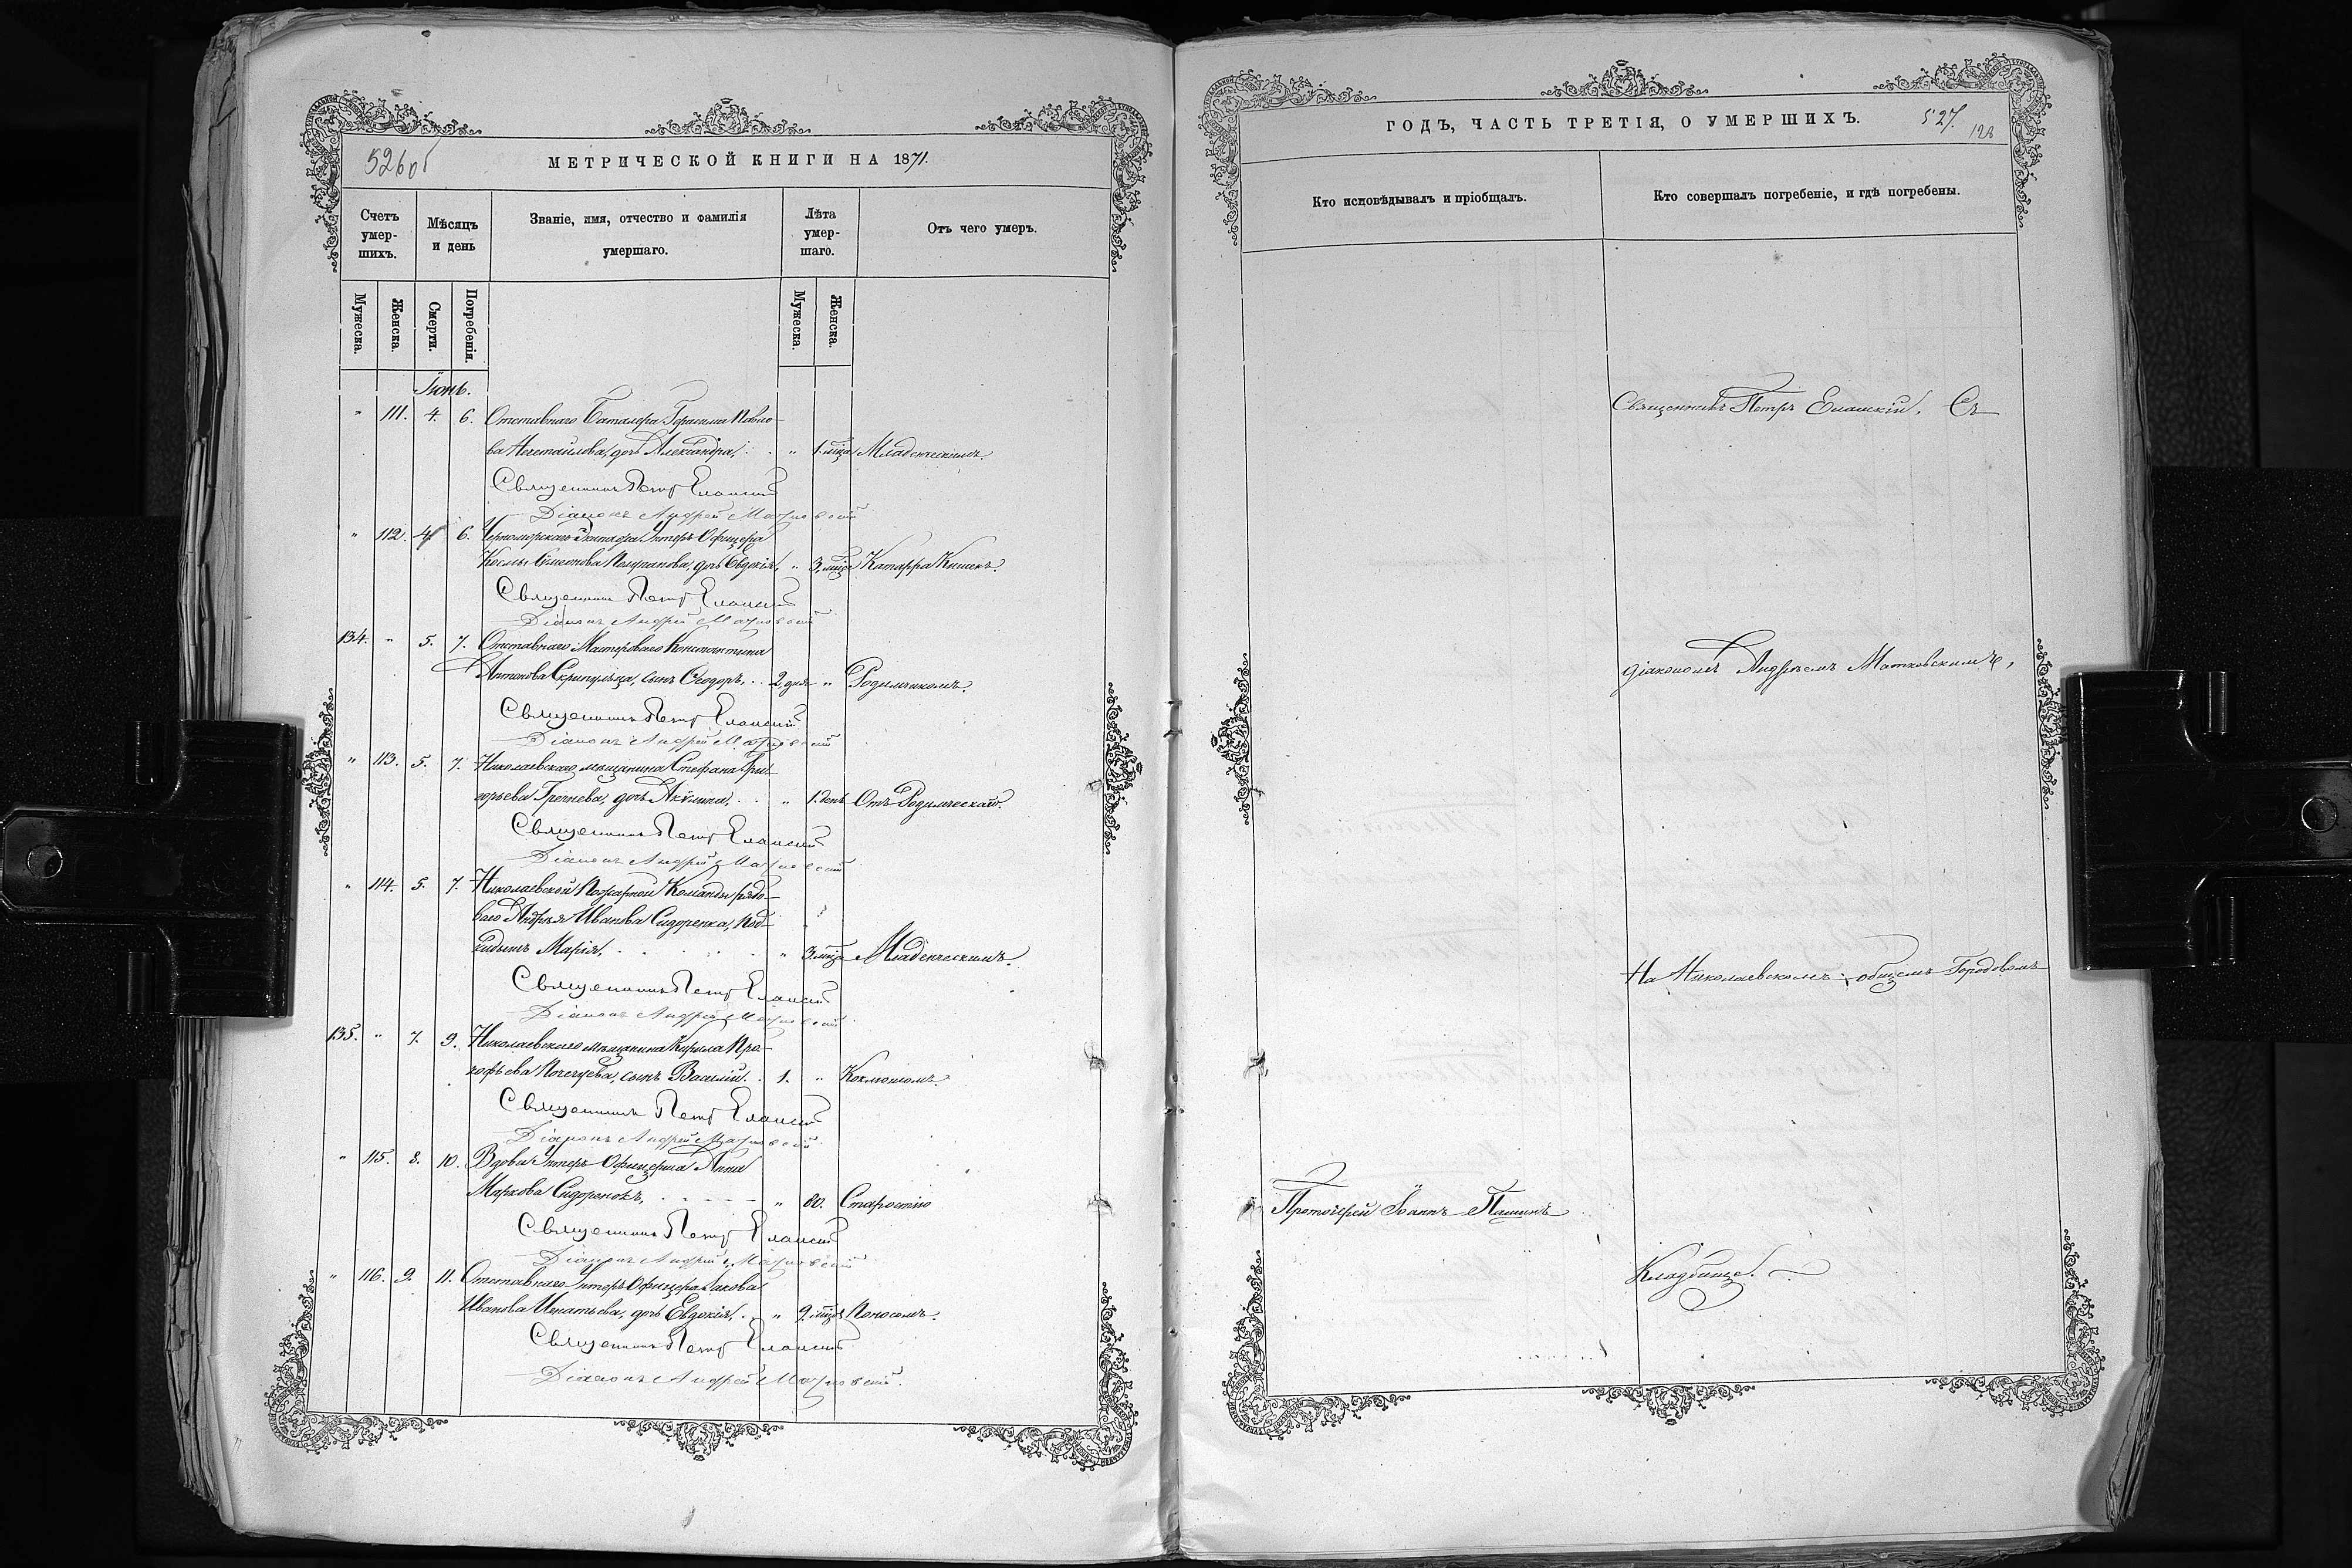 526об
МЕТРИЧЕСКОЙ КНИГИ НА 1871.
Счетъ умер-шихъ.
Мѣсяцъ и день
Званіе, имя, отчество и фамилія умершаго.
Лѣта умер-шаго.
Отъ чего умеръ.
Мужеска.
Женска.
Смерти.
Погребенія.
Мужеска.
Женска.
Іюнь.
" 111. 4. 6. Отставнаго Баталера Герасима
дочь Александра, " 1 мѣца Младенческимъ.
Священникъ Петръ Еланскій
Діаконъ Андрей Матковскій
" 112. 4 6. Черноморскаго Унтеръ Офицера
Козьмы Симеонова дочь Евдокія, " 3 мѣца Катарра Кишекъ.
Священникъ Петръ Еланскій
Діаконъ Андрей Матковскій
134. " 5. 7. Отставнаго Мастероваго Константина
Антонова сынъ Ѳеодоръ, 2 дня " Родимчикомъ.
Священникъ Петръ Еланскій
Діаконъ Андрей Матковскій
" 113. 5. 7. Николаевскаго мѣщанина Стефана Гри-
горьева дочь Акулина, " 1 день Отъ Родимческой.
Священникъ Петръ Еланскій
Діаконъ Андрей Матковскій
" 114. 5. 7. Николаевской Пожарной Команды рядо-
ваго Андрея Иванова Сидоренка, под-
кидышъ Марія, " 3 мѣца Младенческимъ.
Священникъ Петръ Еланскій
Діаконъ Андрей Матковскій
135. " 7. 9. Николаевскаго мѣщанина Кирила Про-
кофьева сынъ Василій. 1. " Коклюшомъ.
Священникъ Петръ Еланскій
Діаконъ Андрей Матковскій
" 115. 8. 10. Вдова Унтеръ Офицерша Анна
Маркова " 80. Старостію
Священникъ Петръ Еланскій
Діаконъ Андрей Матковскій
" 116. 9. 11. Отставнаго Унтеръ Офицера Іакова
Иванова Игнатьева, дочь Евдокія, " 9 мѣца Поносомъ.
Священникъ Петръ Еланскій
Діаконъ Андрей Матковскій.
ГОДЪ, ЧАСТЬ ТРЕТІЯ, О УМЕРШИХЪ.
527.
128
Кто исповѣдывалъ и пріобщалъ.
Кто совершалъ погребеніе, и гдѣ погребены.
Священникъ Петръ Еланскій. Съ
діакономъ Андреемъ Матковскимъ,
На Николаевскомъ общемъ Городовомъ
Протоіерей Іоаннъ
Кладбище.